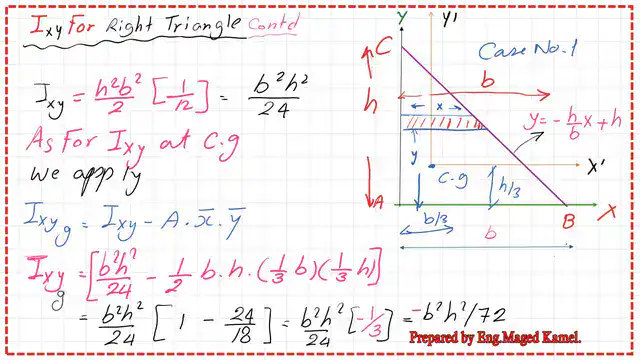 Ixy For Right Triangle Contd
Ixy = h²b²/2 [1/12] = b²h²/24
As For Ixy at C.g
we apply
Ixy g = Ixy - A·x̄·ȳ
Ixy g = [b²h²/24 - 1/2 b·h·(1/3 b)(1/3 h)]
= b²h²/24 [1 - 24/18] = b²h²/24 [-1/3] = -b²h²/72
Y
Y'
Case No.1
C
b
h
x
y = -h/b x + h
y
X'
C.g
h/3
A
B
X
b/3
b
Prepared by Eng.Maged Kamel.